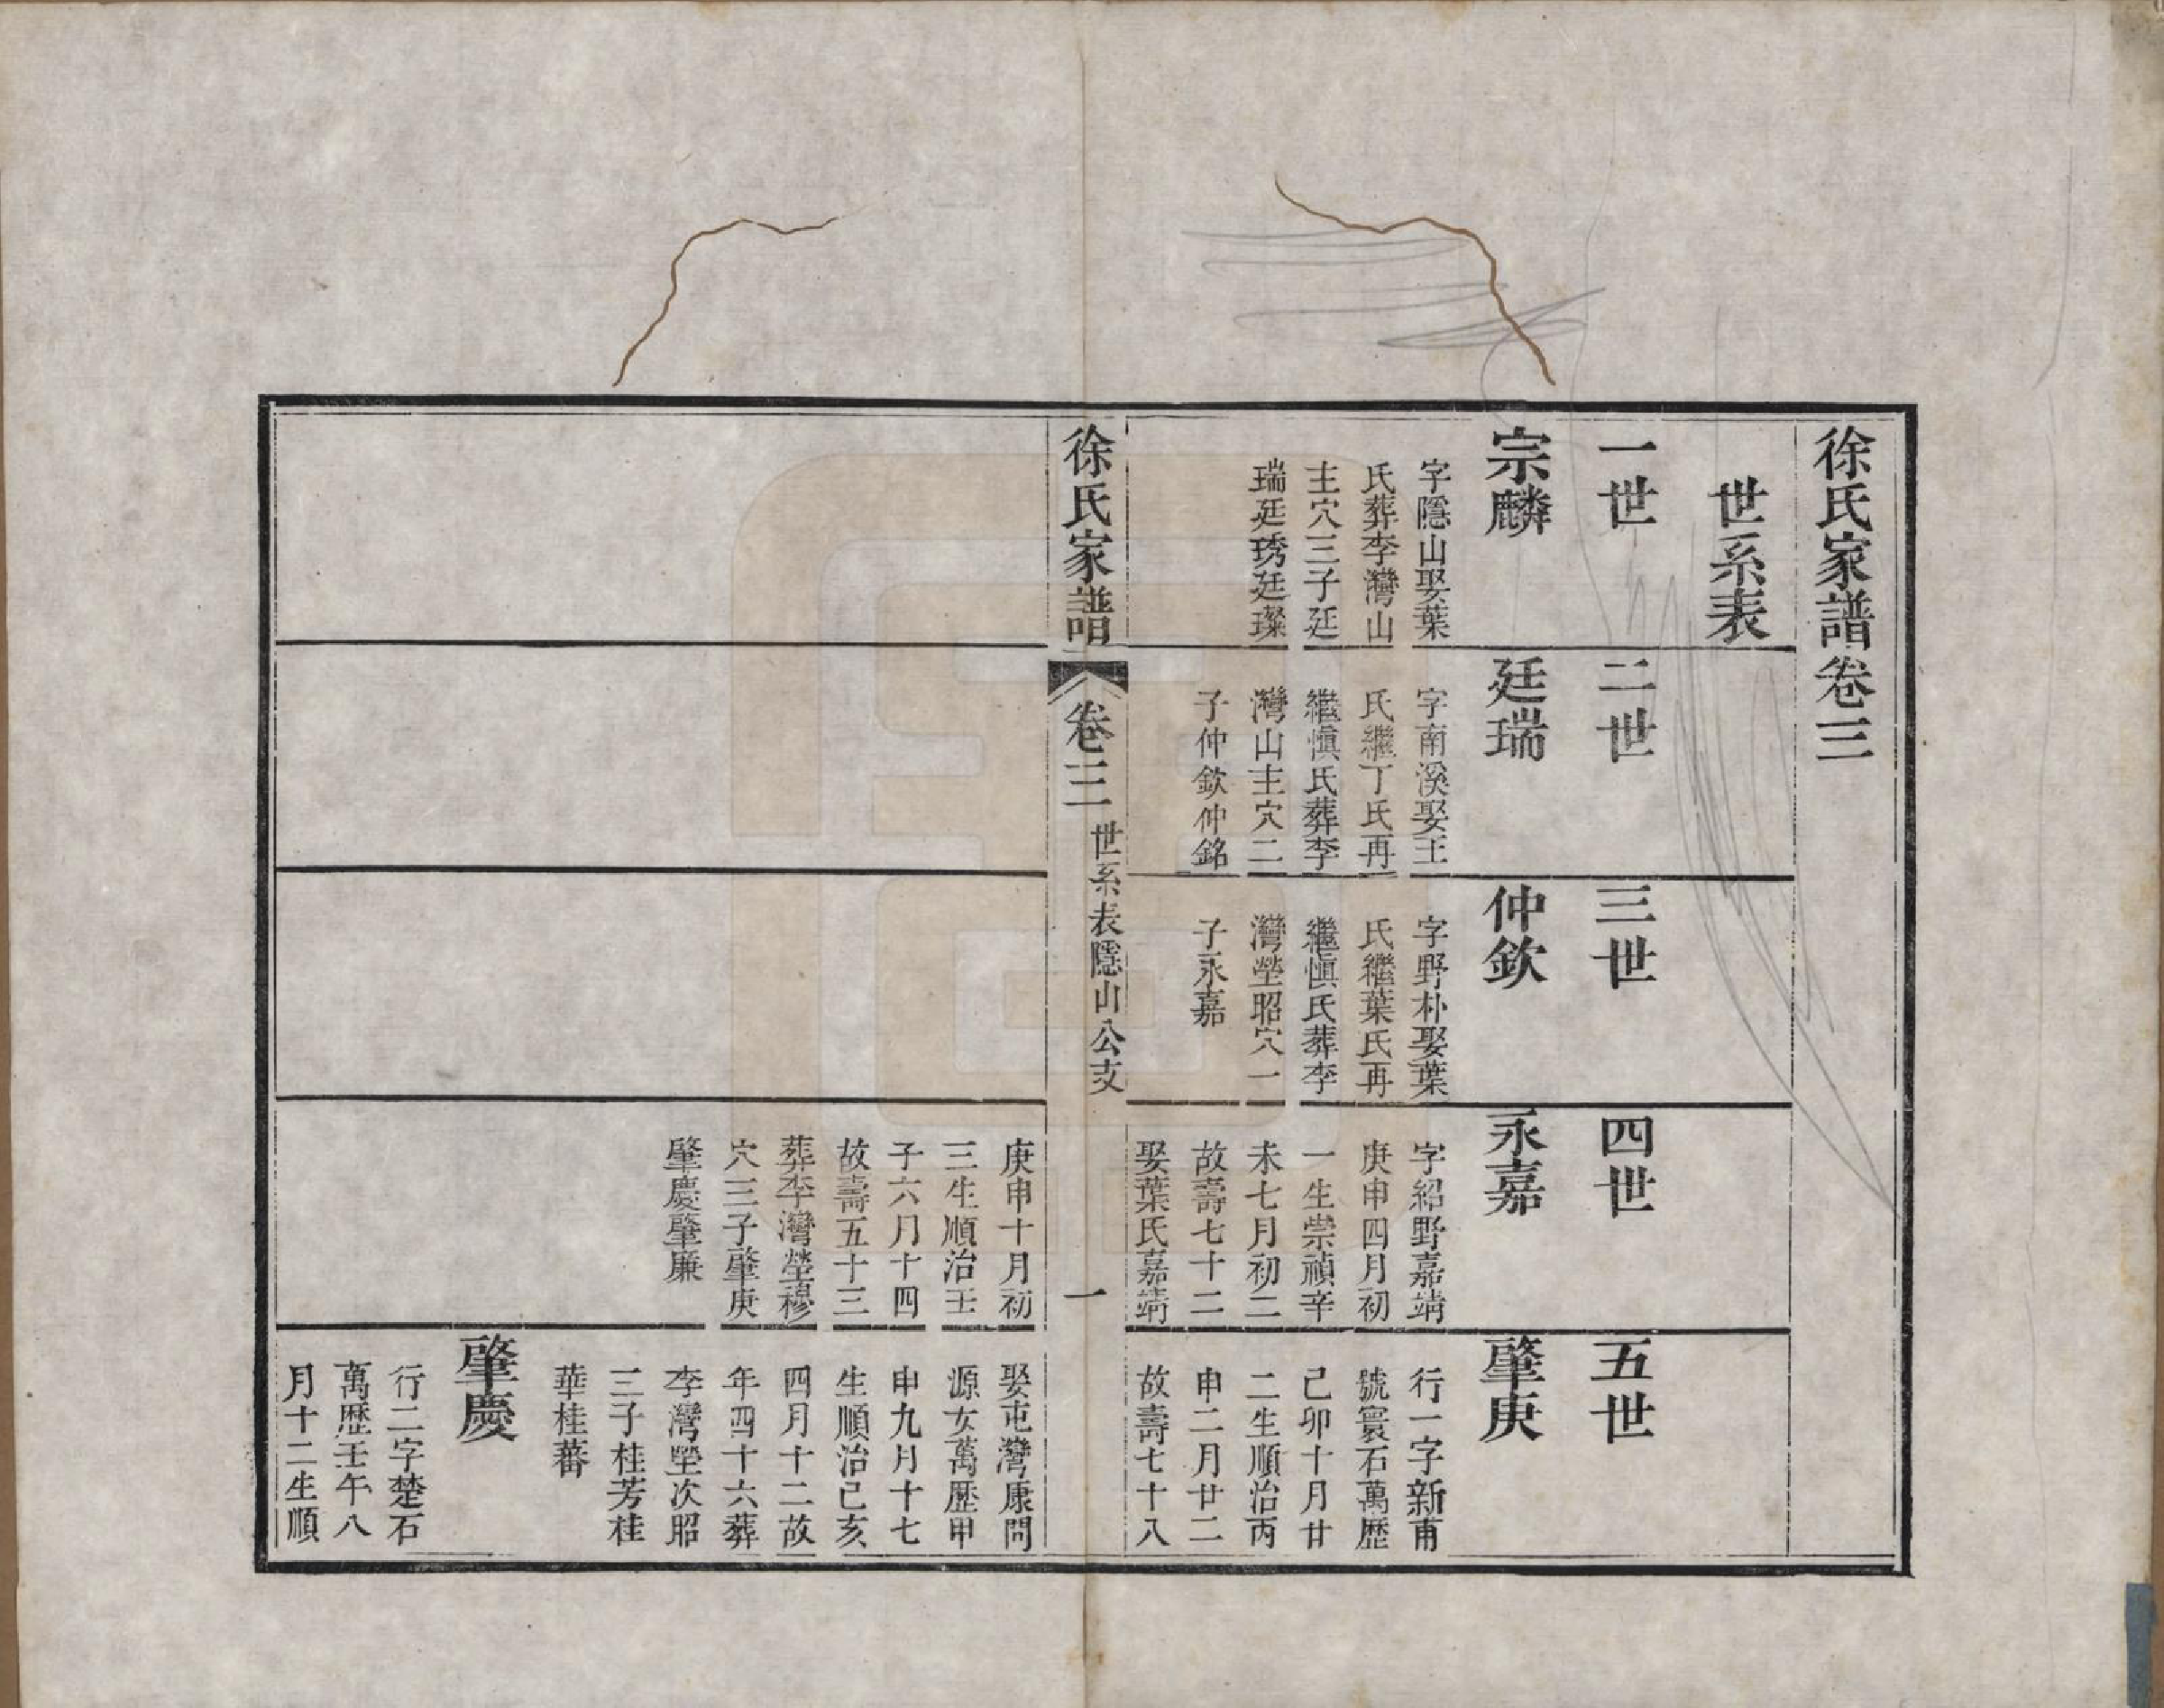 徐氏家譜卷三
世系表
一世
宗麟
字隱山娶葉
氏葬李灣山
主穴三子廷
瑞廷琇廷璨
二世
廷瑞
字南溪娶王
氏繼丁氏再
繼愼氏葬李
灣山主穴二
子仲欽仲銘
三世
仲欽
字野朴娶葉
氏繼葉氏再
繼愼氏葬李
灣塋昭穴一
子永嘉
四世
永嘉
字紹野嘉靖
庚申四月初
一生崇禎辛
未七月初二
故壽七十二
娶葉氏嘉靖
庚申十月初
三生順治壬
子六月十四
故壽五十三
葬李灣塋穆
穴三子肇庚
肇慶肇廉
五世
肇庚
行一字新甫
號寰石萬歷
己卯十月廿
二生順治丙
申二月廿二
故壽七十八
娶屯灣康問
源女萬歷甲
申九月十七
生順治己亥
四月十二故
年四十六葬
李灣塋次昭
三子桂芳桂
華桂蕃
肇慶
行二字楚石
萬歷壬午八
月十二生順
徐氏家譜
卷三
世系表隱山公支
一